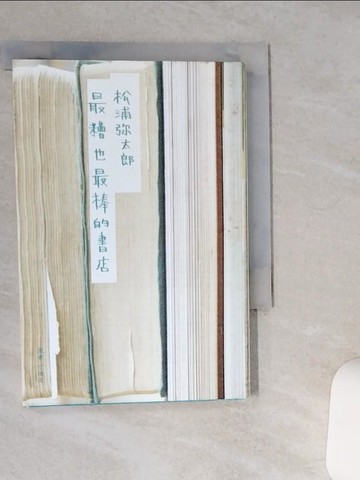 松浦弥太郎
最糟也最棒的書店